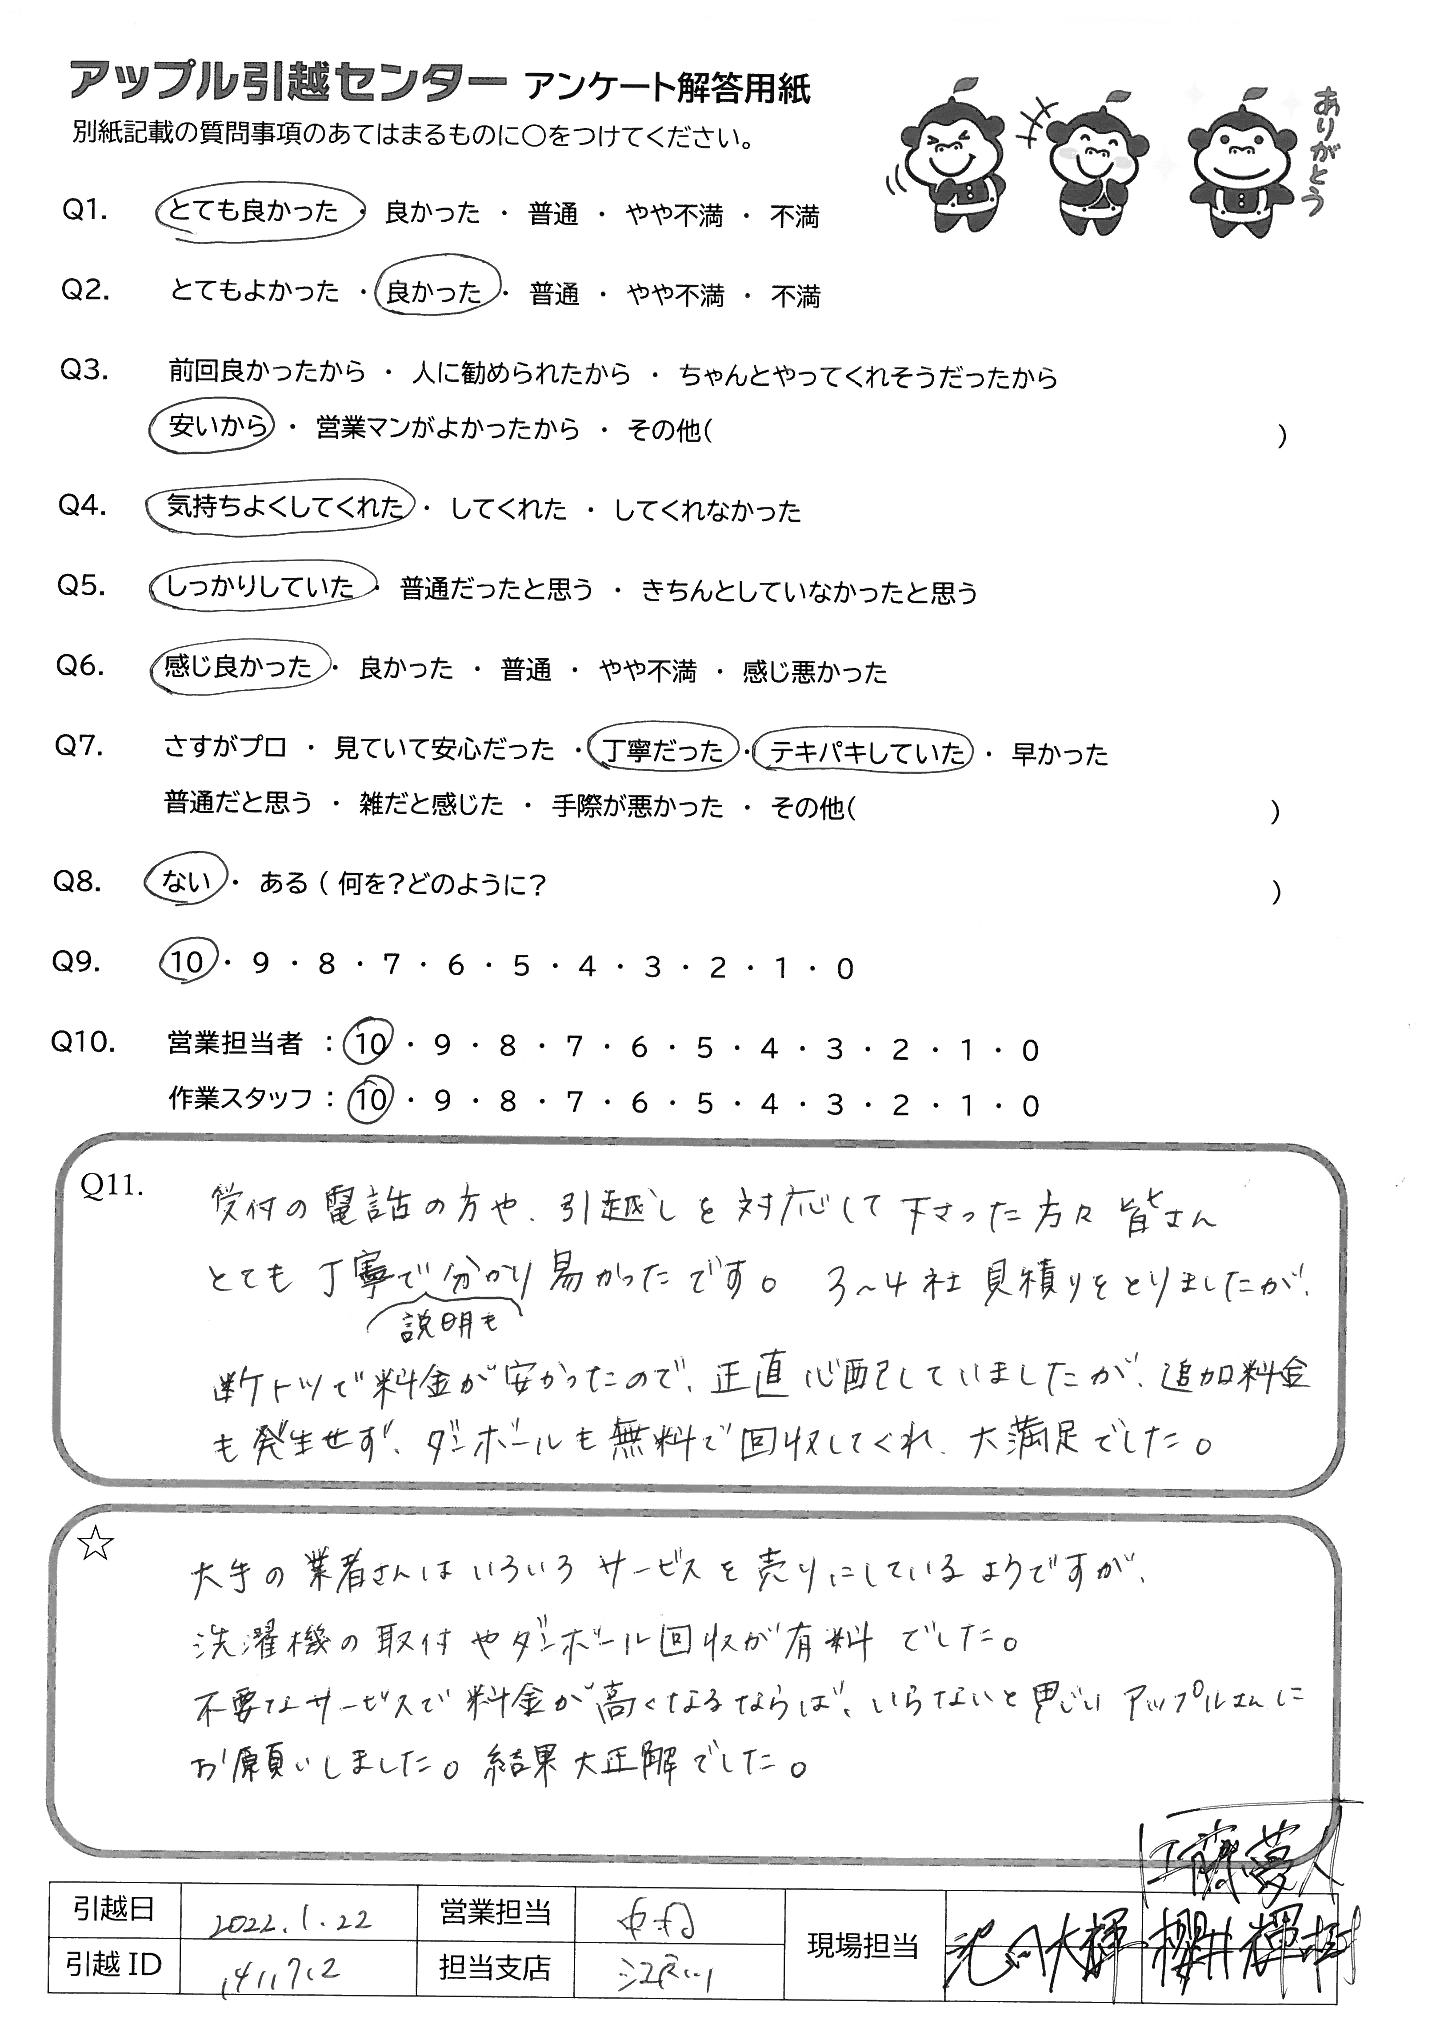 アップル引越センター アンケート解答用紙
別紙記載の質問事項のあてはまるものに○をつけてください。
ありがとう
Q1. とても良かった ・ 良かった ・ 普通 ・ やや不満 ・ 不満
Q2. とてもよかった ・ 良かった ・ 普通 ・ やや不満 ・ 不満
Q3. 前回良かったから ・ 人に勧められたから ・ ちゃんとやってくれそうだったから
安いから ・ 営業マンがよかったから ・ その他( )
Q4. 気持ちよくしてくれた ・ してくれた ・ してくれなかった
Q5. しっかりしていた ・ 普通だったと思う ・ きちんとしていなかったと思う
Q6. 感じ良かった ・ 良かった ・ 普通 ・ やや不満 ・ 感じ悪かった
Q7. さすがプロ ・ 見ていて安心だった ・ 丁寧だった ・ テキパキしていた ・ 早かった
普通だと思う ・ 雑だと感じた ・ 手際が悪かった ・ その他( )
Q8. ない ・ ある ( 何を?どのように? )
Q9. 10 ・ 9 ・ 8 ・ 7 ・ 6 ・ 5 ・ 4 ・ 3 ・ 2 ・ 1 ・ 0
Q10. 営業担当者 : 10 ・ 9 ・ 8 ・ 7 ・ 6 ・ 5 ・ 4 ・ 3 ・ 2 ・ 1 ・ 0
作業スタッフ : 10 ・ 9 ・ 8 ・ 7 ・ 6 ・ 5 ・ 4 ・ 3 ・ 2 ・ 1 ・ 0
Q11. 受付の電話の方や、引越しを対応して下さった方々皆さん
とても丁寧で分かり易かったです。 3~4社見積りをとりましたが、
説明も
断ケトツで料金が安かったので、正直心配していましたが、追加料金
も発生せず、ダンボールも無料で回収してくれ、大満足でした。
☆ 大手の業者さんはいろいろサービスを売りにしているようですが、
洗濯機の取付やダンボール回収が有料でした。
不要なサービスで料金が高くなるならば、いらないと思いアップルさんに
お願いしました。結果大正解でした。
工藤夢人
引越日 2022.1.22 営業担当 現場担当 大輝 櫻井輝樹
引越ID 担当支店